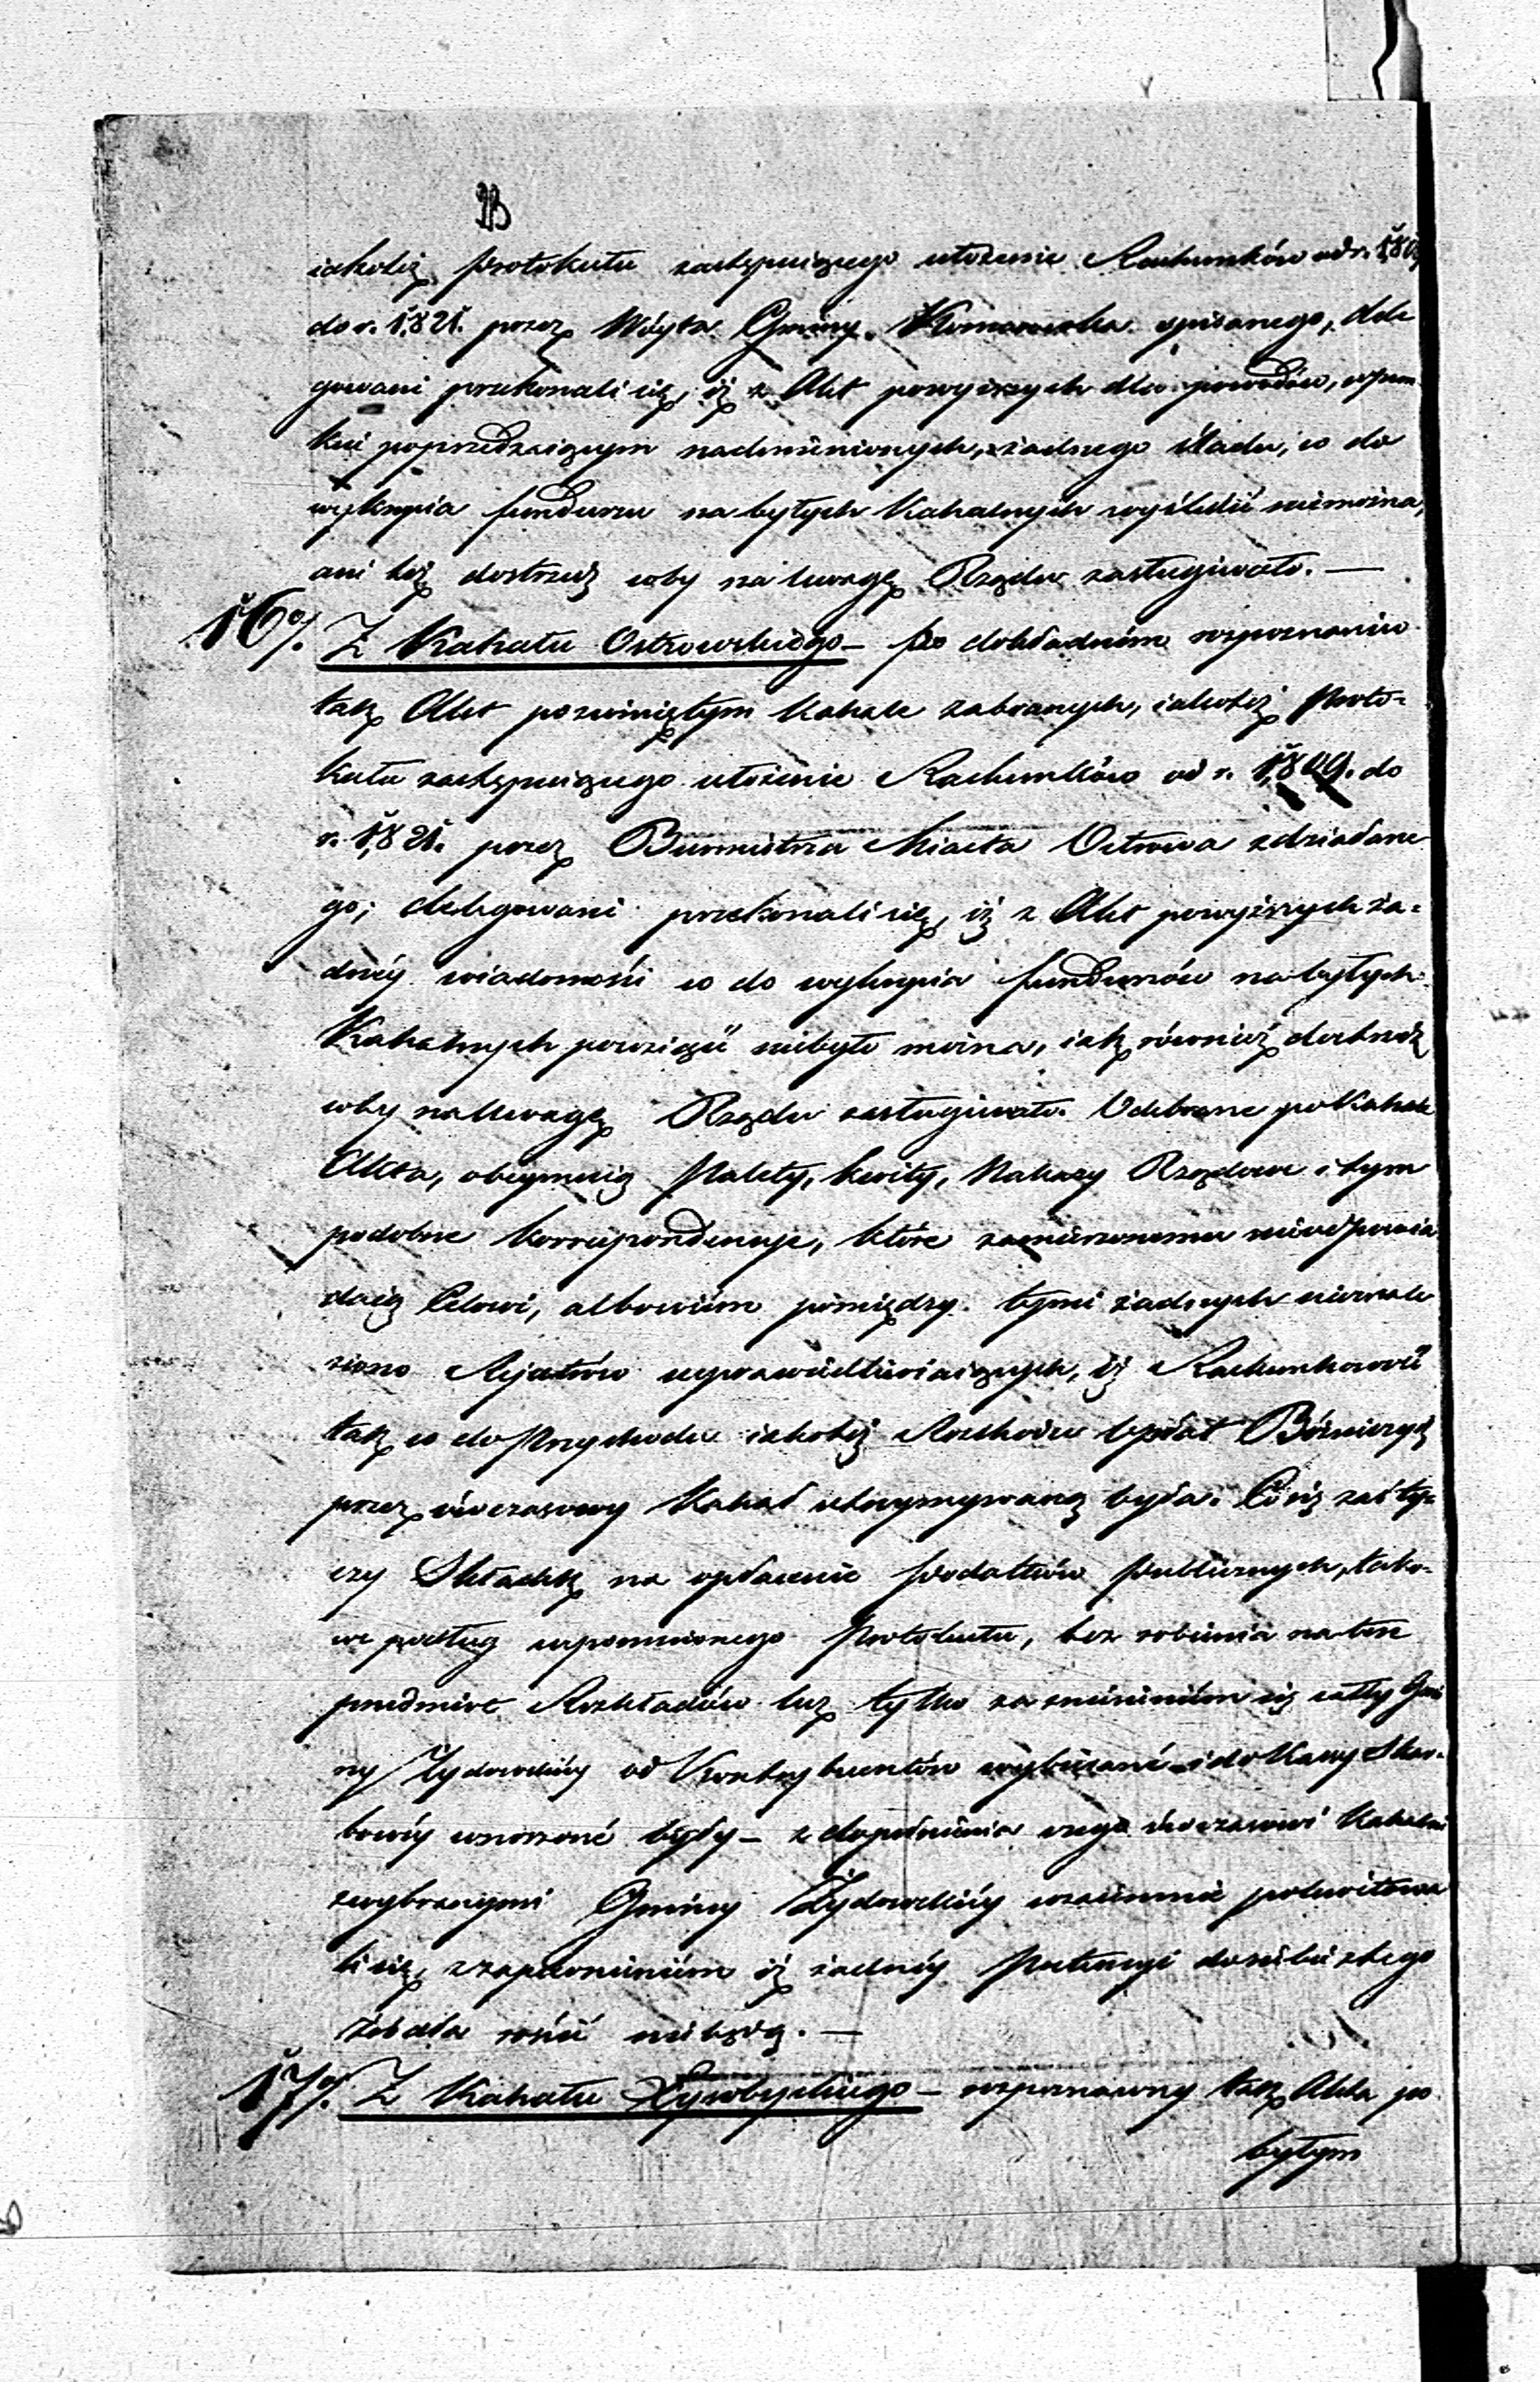 iakoteż protokułu zastępuiącego ułożenie Rachunków od r. 1809
do r. 1821. przez Wóyta Gminy Komarowka spisanego, dele
gowani przekonali się, iż z Akt powyższych dla powodów, w pun
kcie poprzedzaiącym nadmienionych, żadnego śladu, co do
wykrycia funduszu na byłych Kahalnych wyśledzić niemożna,
ani też dostrzedz coby na uwagę Rządu zasługiwało. —
16o/. Z Kahału Ostrowskiego — po dokładném rozpoznaniu
tak Akt po zwiniętym Kahale zabranych, iakoteż Proto-
kułu zastępuiącego ułożenie Rachunków od r. 1809. do
r. 1821. przez Burmistrza Miasta Ostrowa zdziałane
go; delegowani przekonali się, iż z Akt powyższych ża-
dnéy wiadomości co do wykrycia funduszów na byłych
Kahalnych powziąść niebyło można, iak również dostrzedz
coby na Uwagę Rządu zasługiwało. Odebrane po Kahale
Akta, obeymuią Palety, kwity, Nakazy Rządowe i tym
podobne korrespondencye, które zamierzonemu nieodpowia
daią Celowi, albowiem pomiędzy tymi żadnych nieznale
ziono Rejestrów usprawiedliwiaiących, iż Rachunkowość
tak co do Przychodu iakoteż Rozchodu Opłat Bóżniczych
przez ówczasowy Kahał utrzymywaną była. Co się zaś ty-
czy Składek na opłacenie podatków publicznych, tako-
we podług wspomnionego Protokułu, bez robienia na ten
przedmiot Rozkładów lecz tylko za zniesieniem się całéy Gmi
ny Żydowskiéy od Kontrybuentów wybierané i do Kassy Skar-
bowéy wnoszoné były — z dopełnienia czego ówczasowi Kahalni
z wybranymi Gminy Żydowskiéy wzaiemnie pokwitowa
li się, z zapewnieniem iż żadnéy Pretensyi do siebie z tego
źródła rościć niebędą. —
17o/. Z Kahału Łysobyckiego — rozpoznawszy tak Akta po
byłym